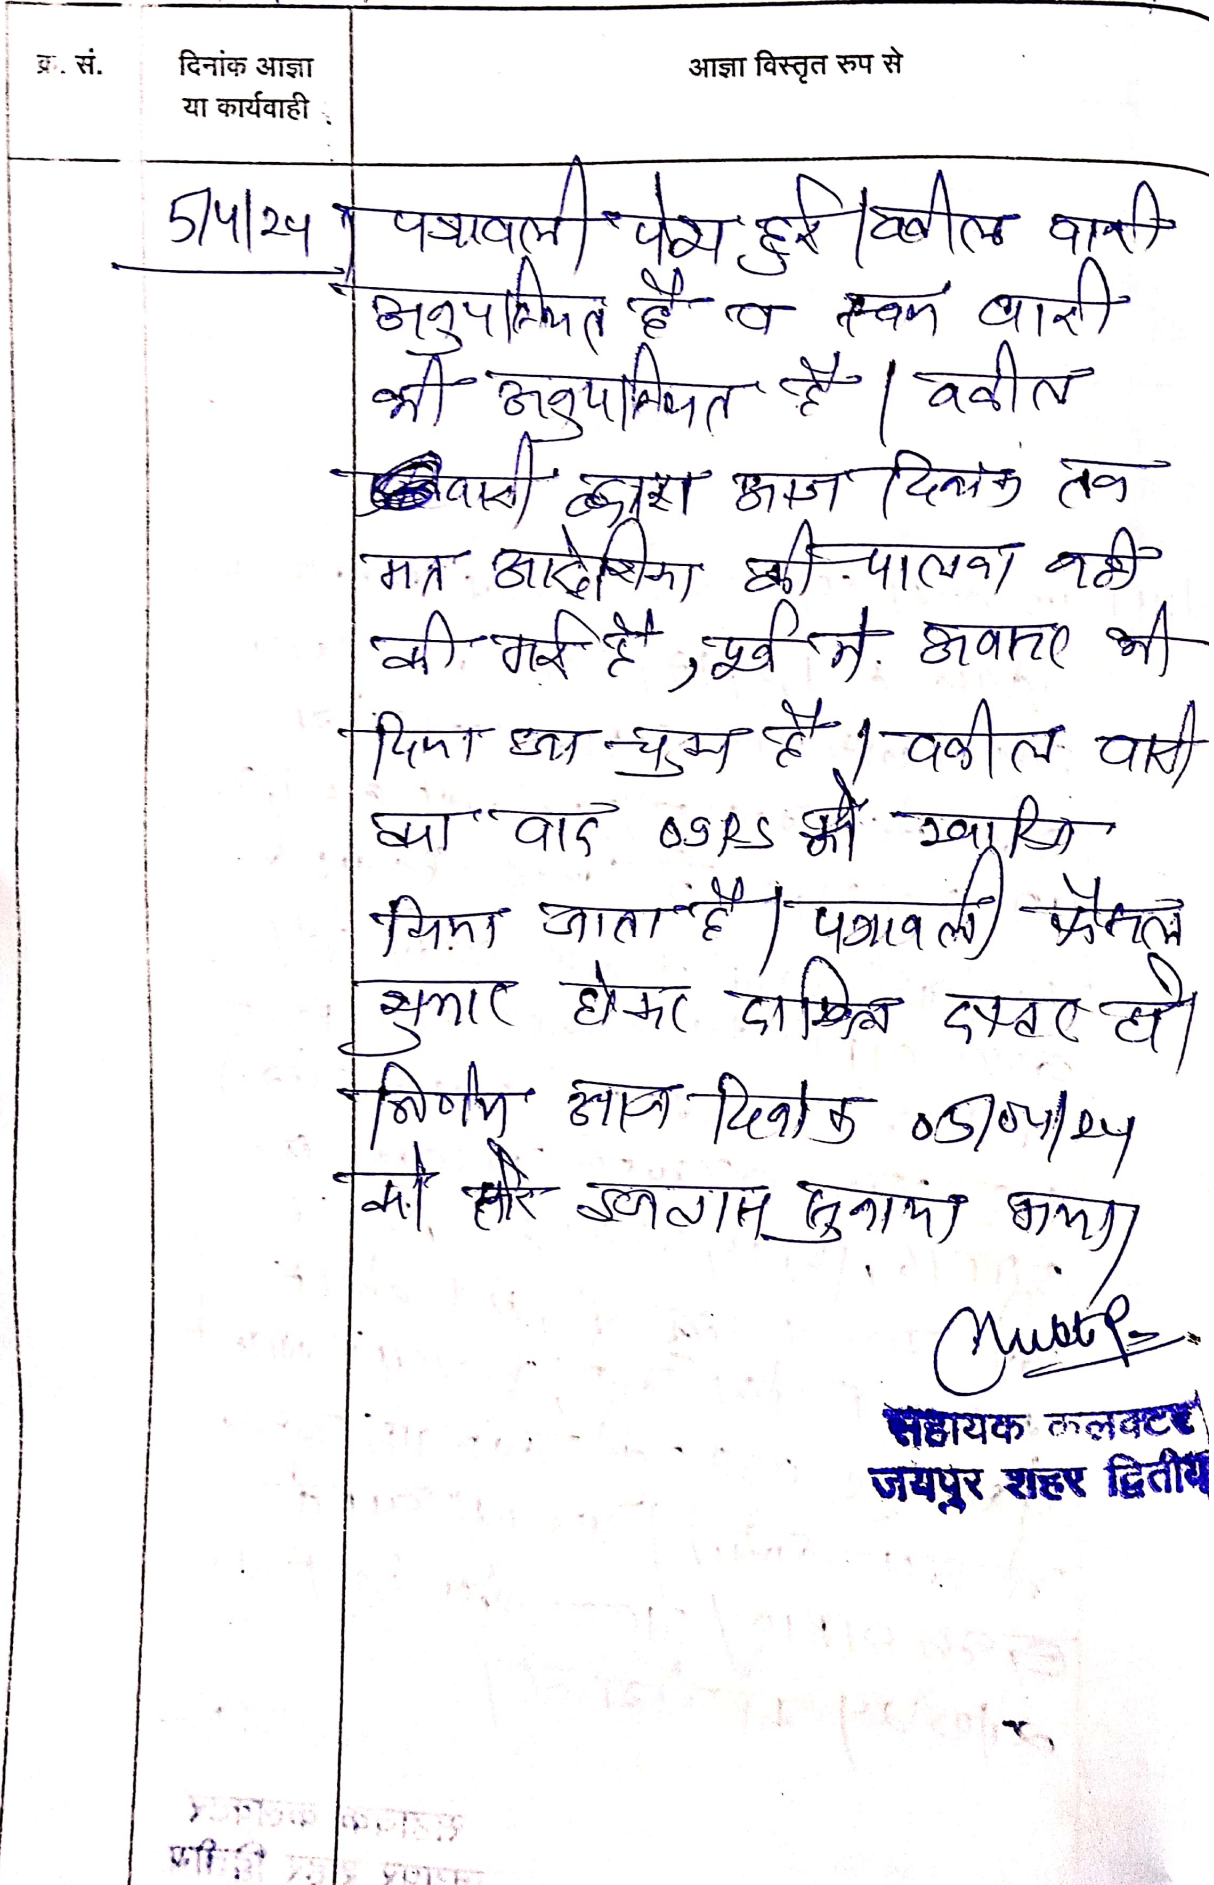 क्र. सं.
दिनांक आज्ञा
या कार्यवाही
आज्ञा विस्तृत रुप से
5/4/24
पत्रावली पेश हुई। वकील वादी
अनुपस्थित है व स्वयं वादी
भी अनुपस्थित है। वकील
वादी द्वारा आज दिनांक तक
गत आदेशिका की पालना नही
की गई है, पूर्व में अवसर भी
दिया जा चुका है। वकील वादी
का वाद को खारिज
किया जाता है। पत्रावली फैसल
शुमार होकर दाखिल दफ्तर हो।
निर्णय आज दिनांक 05/04/24
को सरे इजलास सुनाया गया।
सहायक कलक्टर
जयपुर शहर द्वितीय